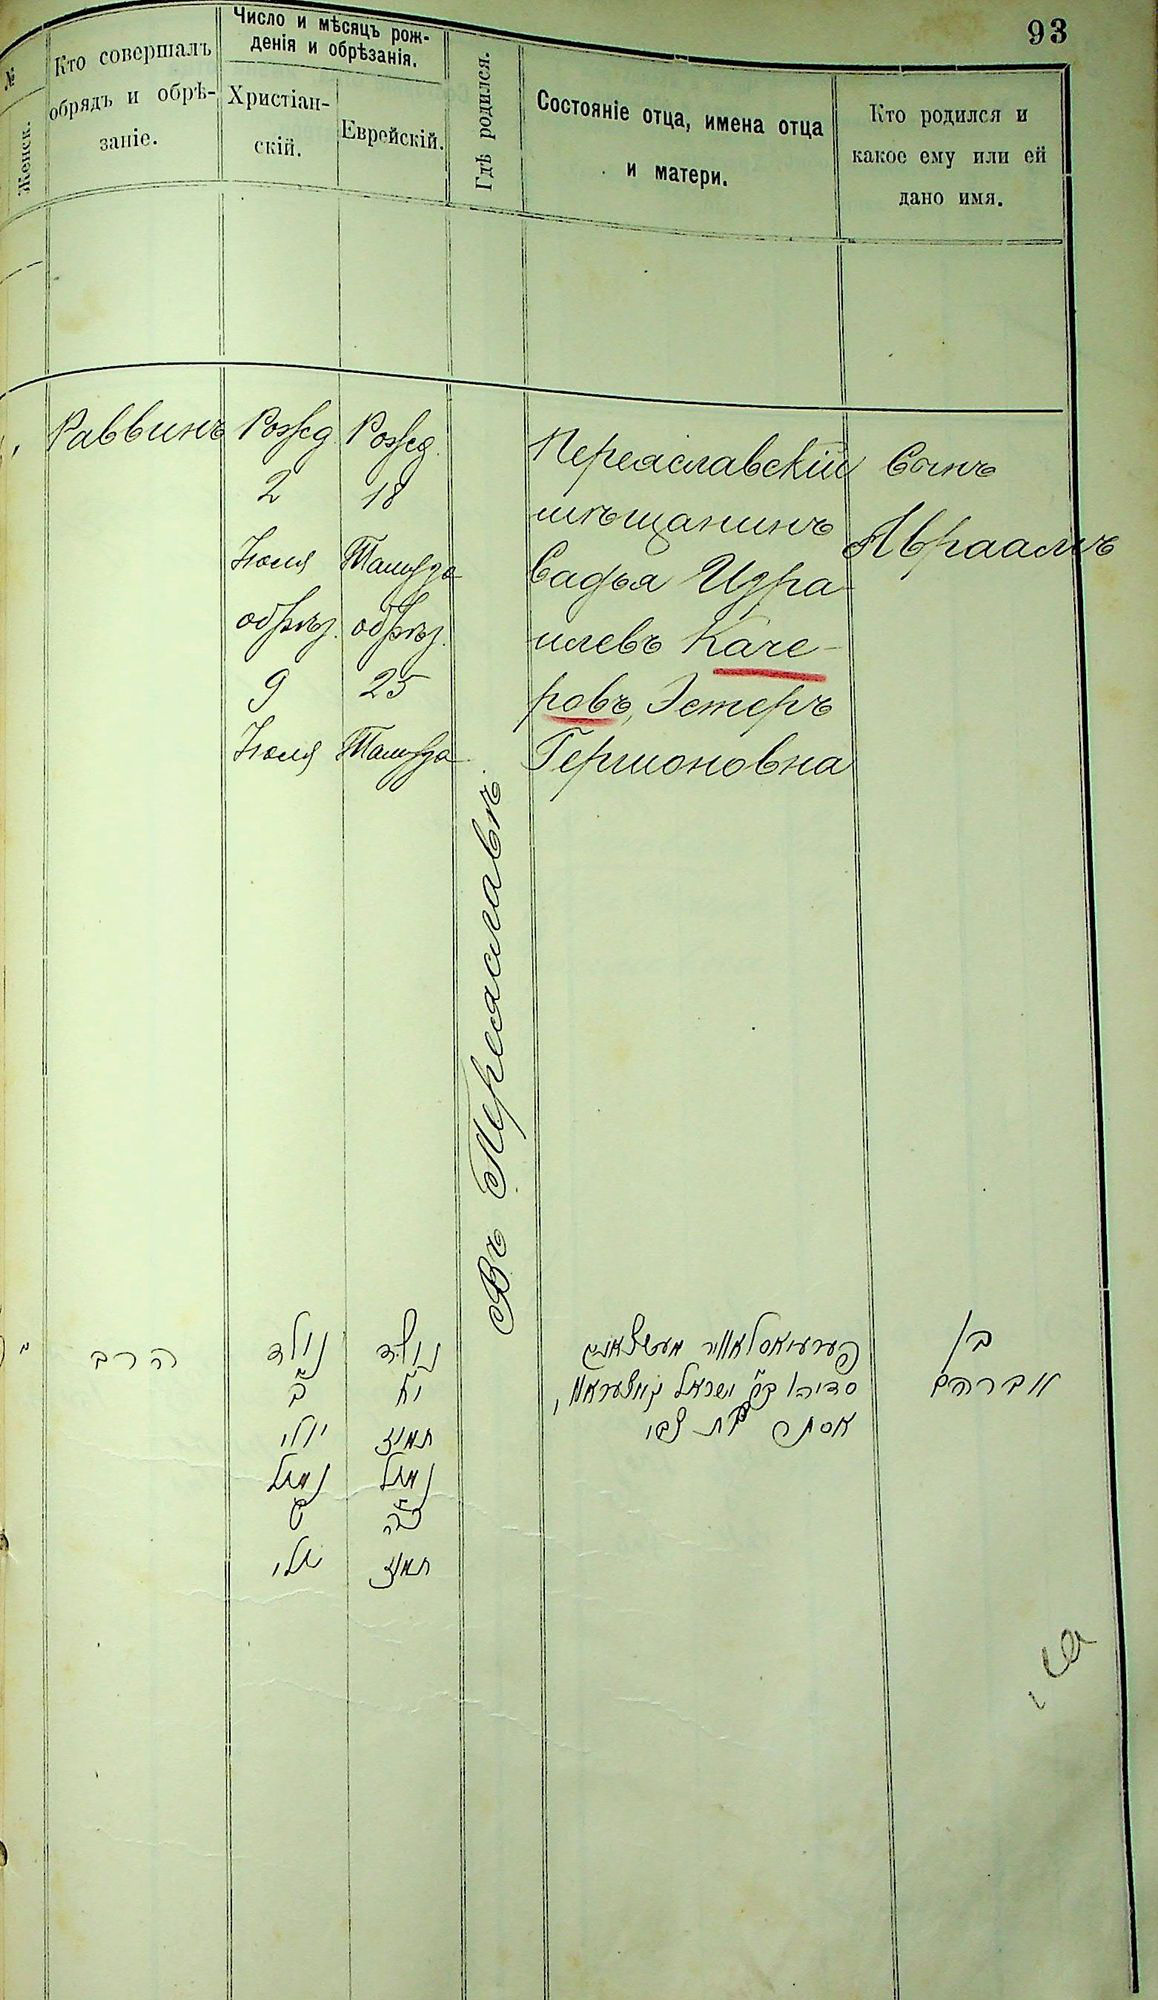 93
№
Женск.
Кто совершалъ
обрядъ и обрѣ-
заніе.
Число и мѣсяцъ рож-
денія и обрѣзанія.
Христіан-
скій.
Еврейскій.
Гдѣ родился.
Состояніе отца, имена отца
и матери.
Кто родился и
какое ему или ей
дано имя.
Раввинъ
Рожд
2
Іюля
обрѣз.
9
Іюля
Рожд.
18
Тамуза
обрѣз.
25
Тамуза
Въ Переяславѣ
Переяславскій
мѣщанинъ
Садья Изра-
илевъ Каче-
ровъ, Эстеръ
Гершоновна
Сынъ
Авраамъ
הרב
נולד
ב
יולי
נמול
ט
יולי
נולד
י״ח
תמוז
נמול
כ״ה
תמוז
ישראל
אסתר בת צבי
בן
אברהם